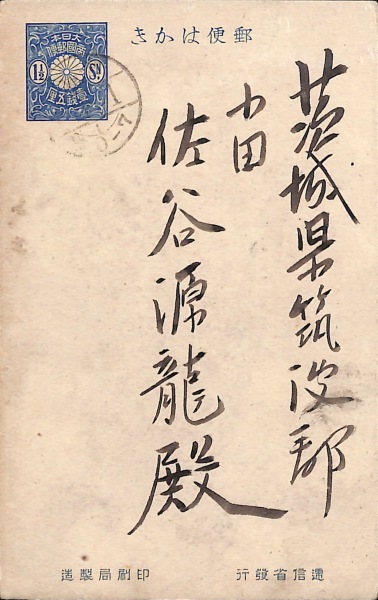 郵便はかき
大日本
帝國郵便
1½ Sn
壹錢五厘
茨城県筑波郡
小田
佐谷源龍殿
遞信省發行
印刷局製造